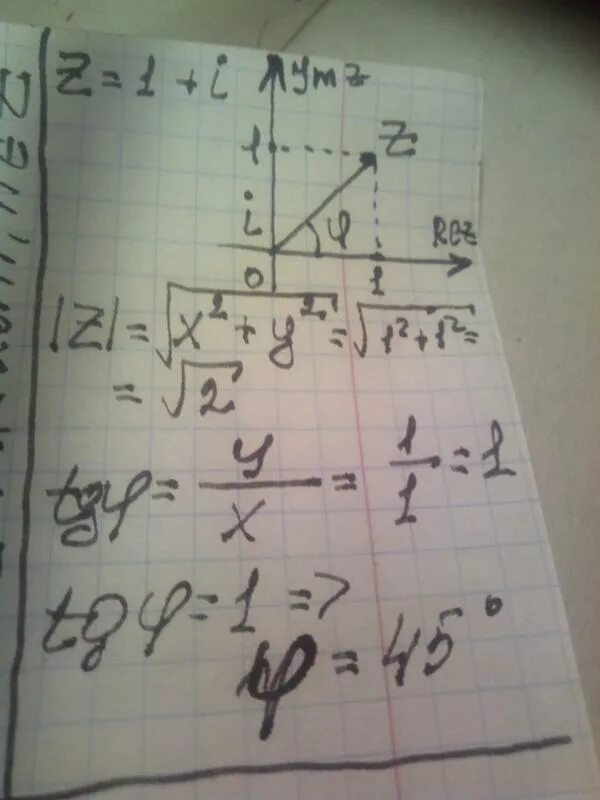 Z = 1 + i
Ymz
1
Z
i
φ
Rez
0
1
|Z| = √x² + y² = √1² + 1² =
= √2
tgφ = y/x = 1/1 = 1
tgφ = 1 =>
φ = 45°